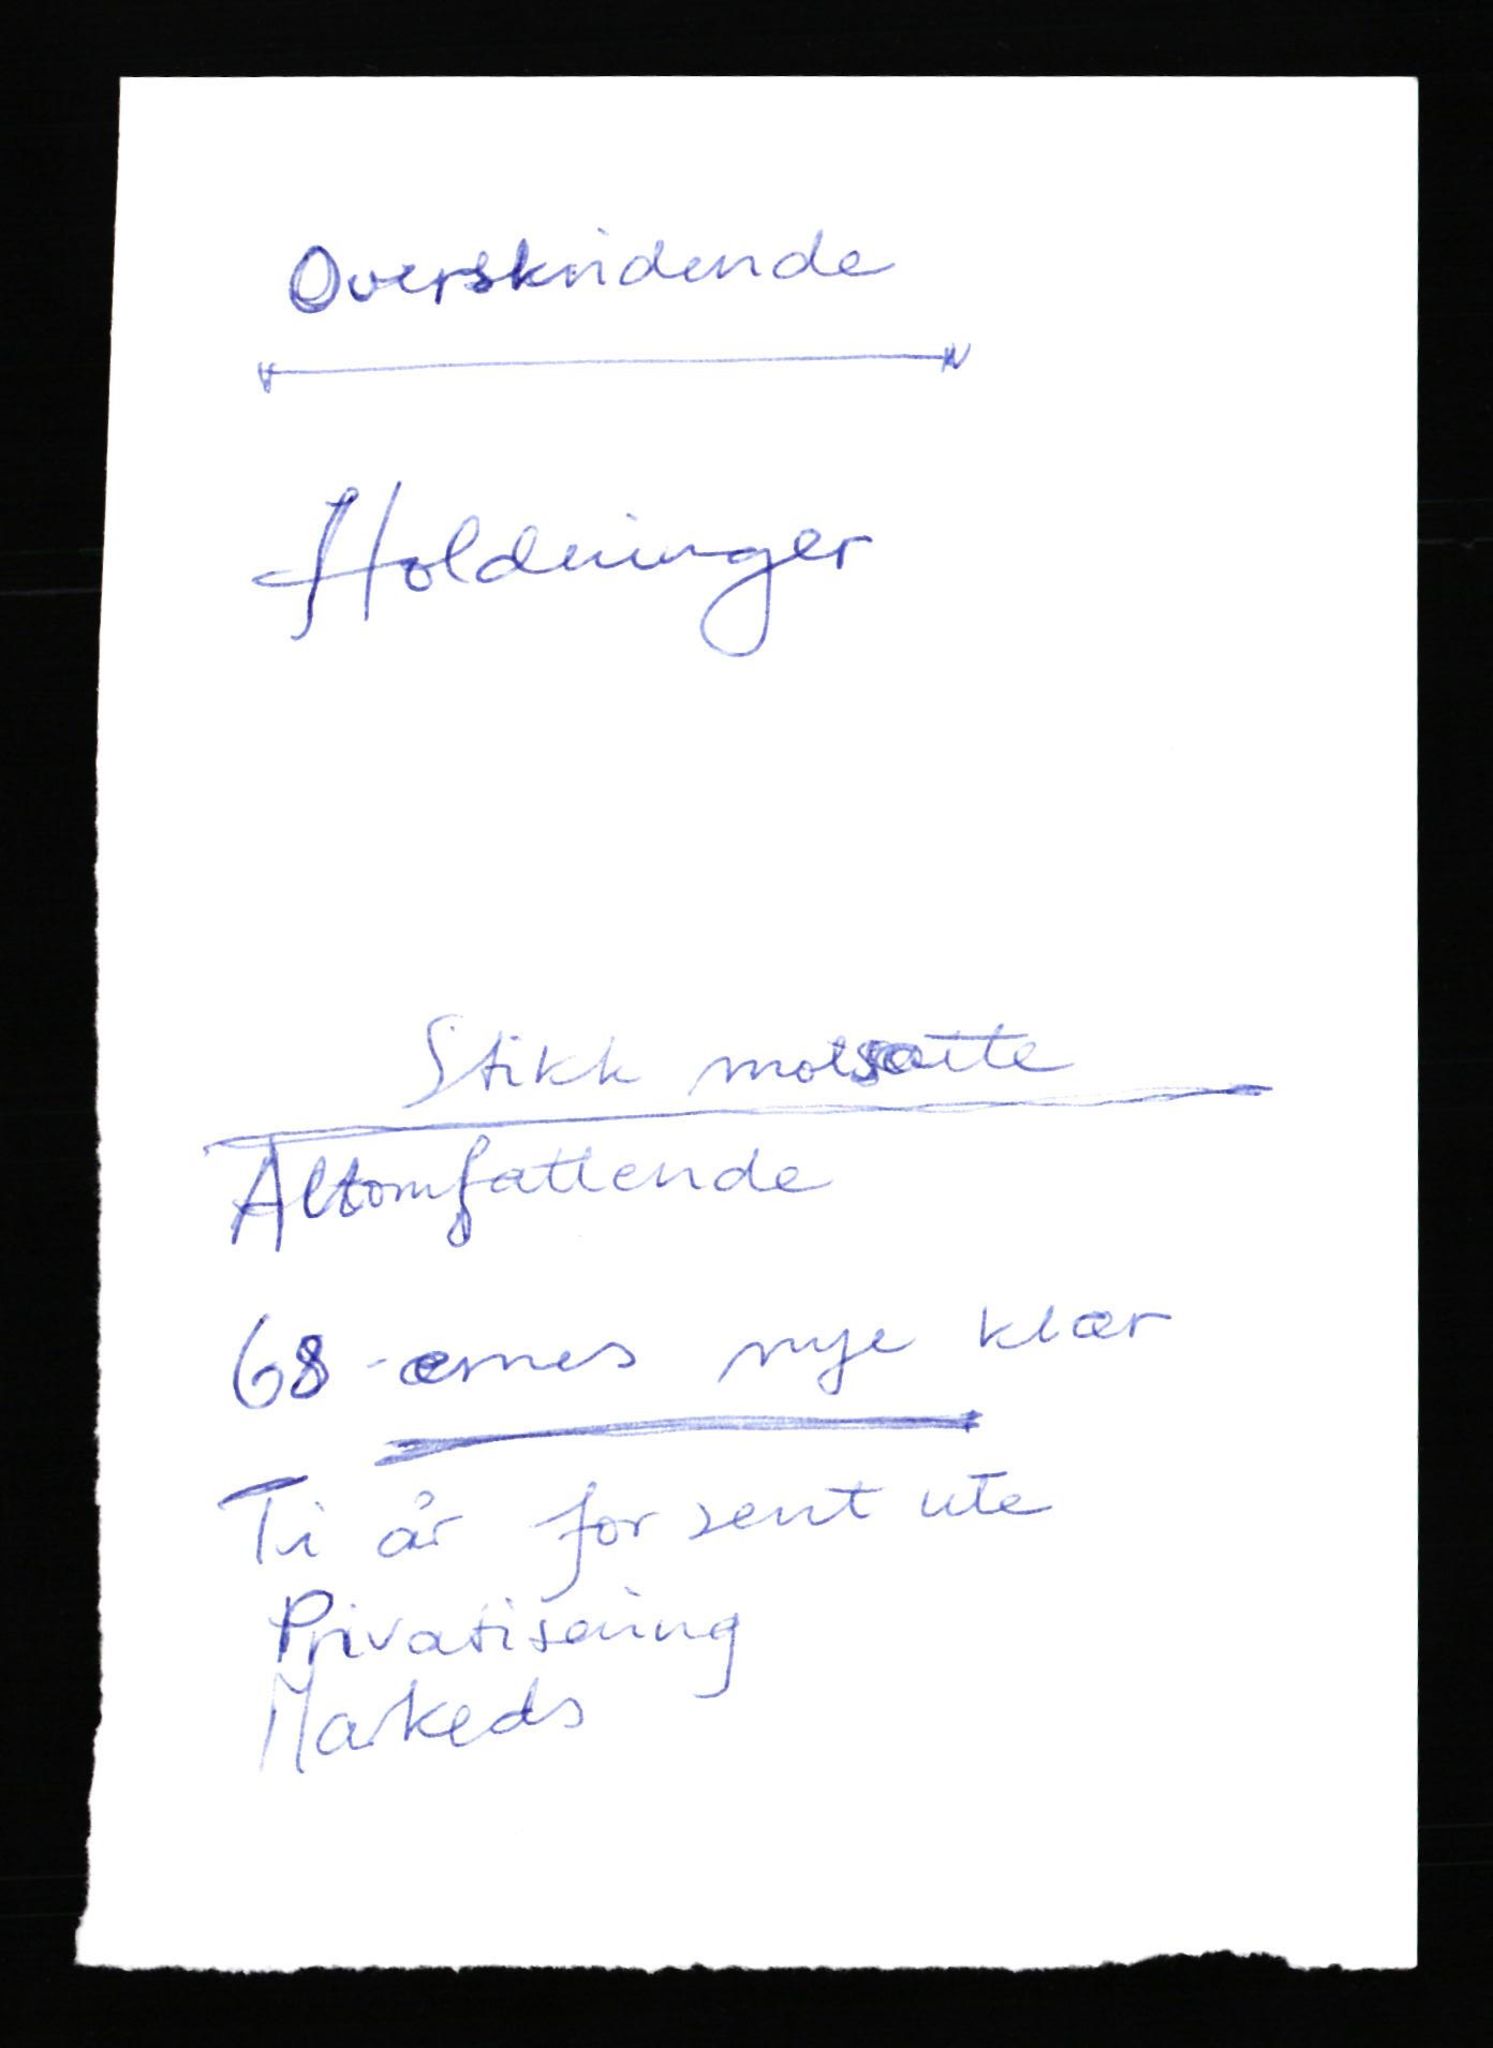 Overskridende
Holdninger
Stikk motsatte
Altomfattende
68-ernes nye klær
Ti år for sent ute
Privatisering
Markeds